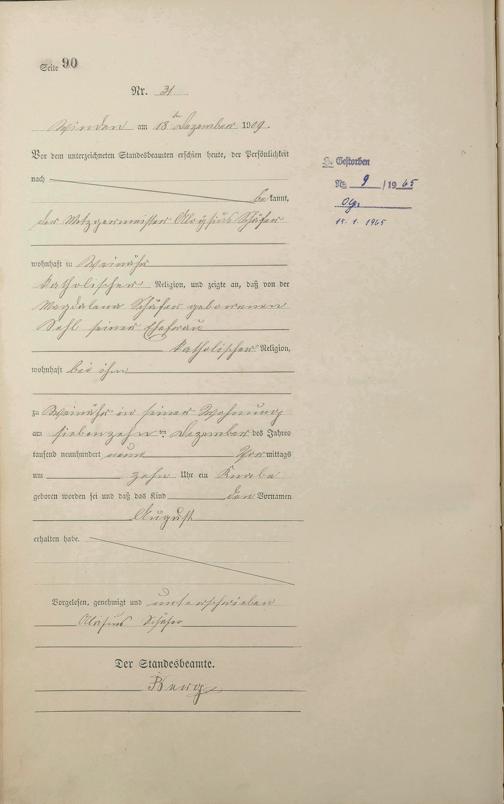 Seite 90
Nr. 31
Winden am 18ten Dezember 1909.
Vor dem unterzeichneten Standesbeamten erschien heute, der Persönlichkeit
nach bekannt,
der Metzgermeister Aloysius Schäfer
wohnhaft in Weinähr
katholischer Religion, und zeigte an, daß von der
Magdalena Schäfer geborenen
Sehl seiner Ehefrau
katholischer Religion,
wohnhaft bei ihm
zu Weinähr in seiner Wohnung
am siebenzehnten Dezember des Jahres
tausend neunhundert neun Vormittags
um zehn Uhr ein Knabe
geboren worden sei und daß das Kind den Vornamen
August
erhalten habe.
Vorgelesen, genehmigt und unterschrieben
Aloisius Schäfer
Der Standesbeamte.
Berg
Gestorben
No 9 / 1965
1965